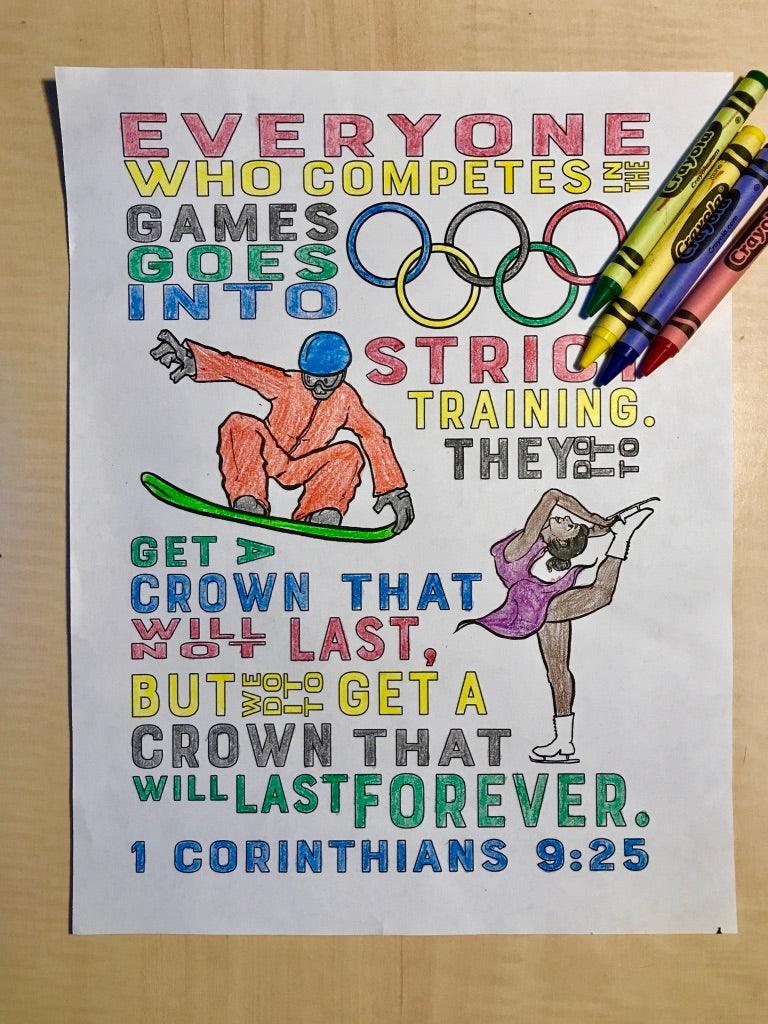 EVERYONE
WHO COMPETES IN THE
GAMES
GOES
INTO
STRICT
TRAINING.
THEY DO IT TO
GET A
CROWN THAT
WILL NOT LAST,
BUT WE DO IT TO GET A
CROWN THAT
WILL LAST FOREVER.
1 CORINTHIANS 9:25
Crayola
Crayola
Crayola.com
Crayola
Crayola